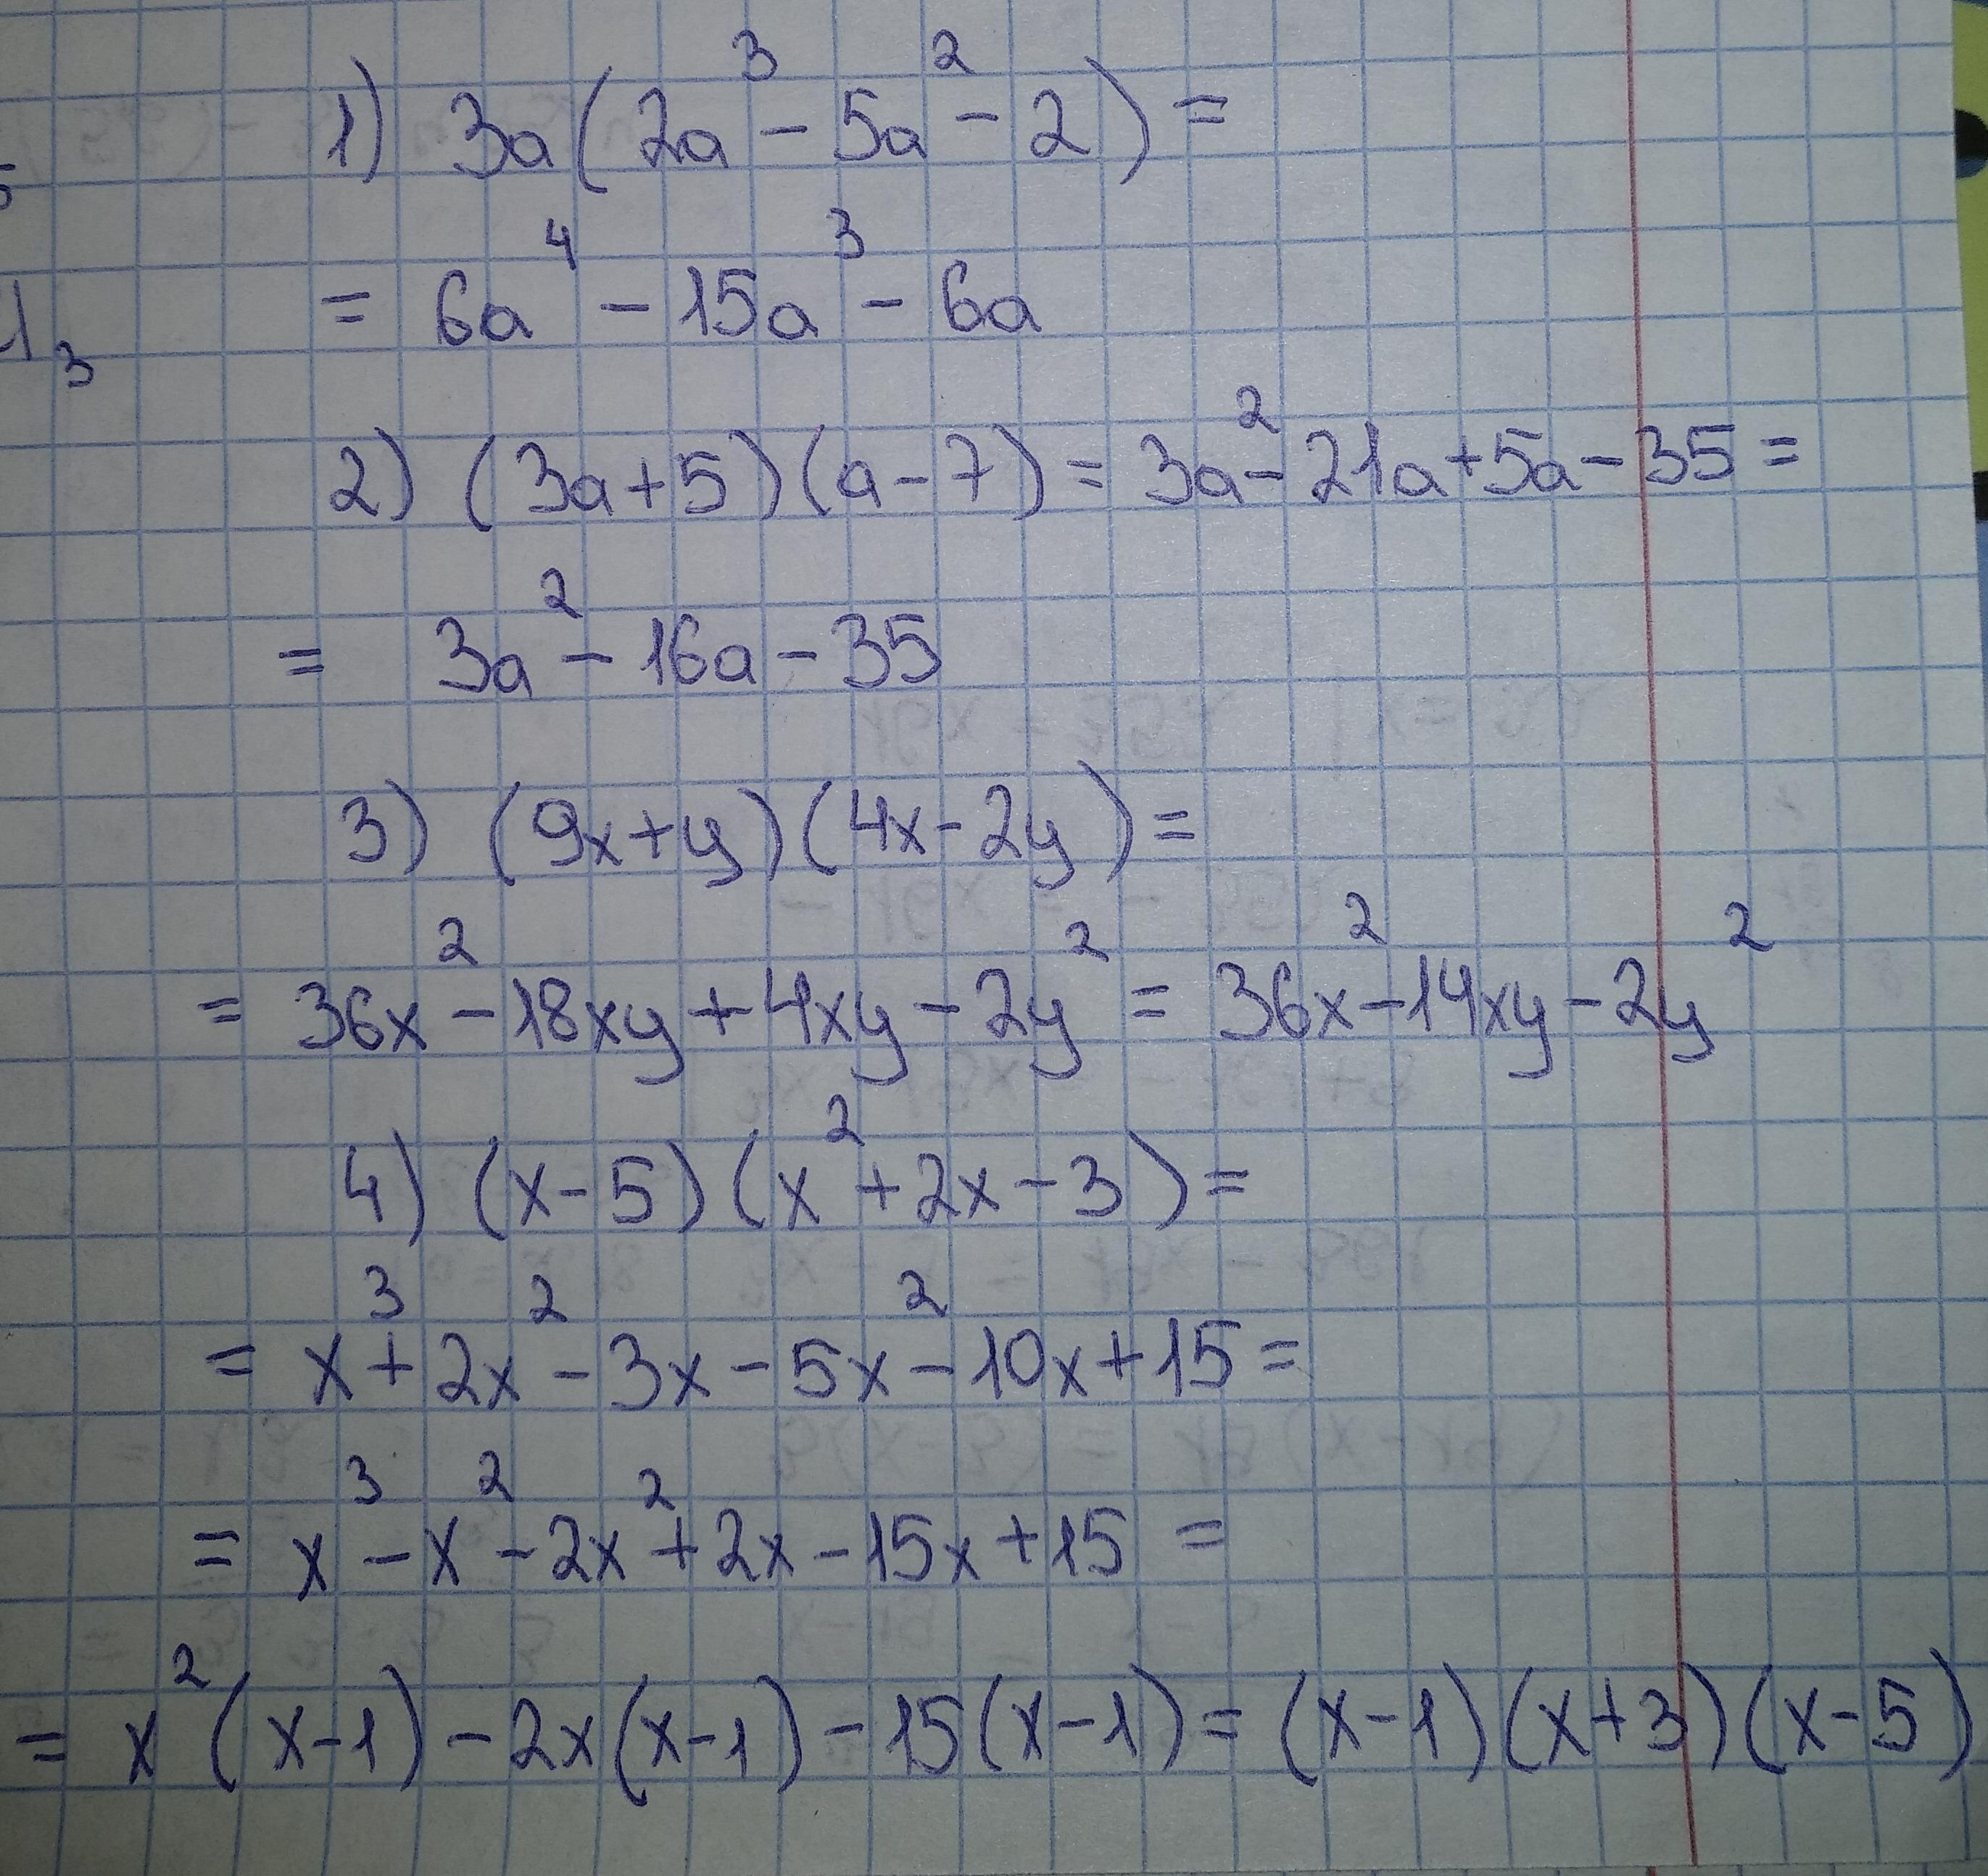 1) 3a(2a³ - 5a² - 2) =
= 6a⁴ - 15a³ - 6a
2) (3a+5)(a-7) = 3a² - 21a + 5a - 35 =
= 3a² - 16a - 35
3) (9x+y)(4x-2y) =
= 36x² - 18xy + 4xy - 2y² = 36x² - 14xy - 2y²
4) (x-5)(x²+2x-3) =
= x³ + 2x² - 3x - 5x² - 10x + 15 =
= x³ - x² - 2x² + 2x - 15x + 15 =
= x²(x-1) - 2x(x-1) - 15(x-1) = (x-1)(x+3)(x-5)